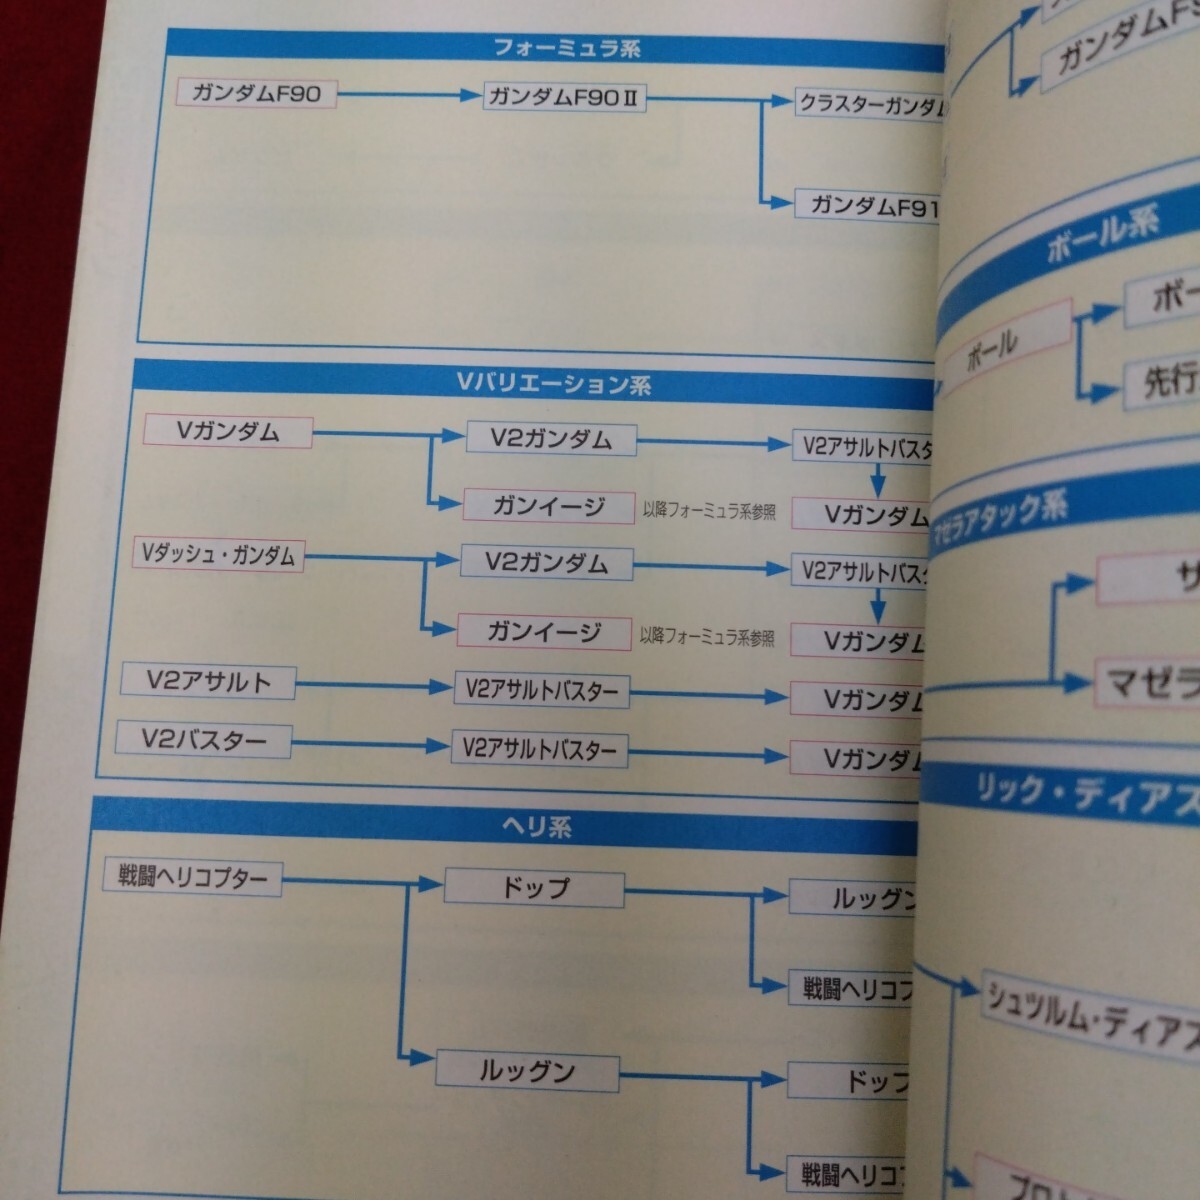 フォーミュラ系
ガンダムF90
ガンダムF90Ⅱ
クラスターガンダム
ガンダムF91
Vバリエーション系
Vガンダム
V2ガンダム
V2アサルトバスタ
ガンイージ
以降フォーミュラ系参照
Vガンダム
Vダッシュ・ガンダム
V2ガンダム
V2アサルトバスタ
ガンイージ
以降フォーミュラ系参照
Vガンダム
V2アサルト
V2アサルトバスター
Vガンダム
V2バスター
V2アサルトバスター
Vガンダム
ヘリ系
戦闘ヘリコプター
ドップ
ルッグン
戦闘ヘリコプ
ルッグン
ドップ
戦闘ヘリコプ
ガンダムF9
ボール系
ボール
ボー
先行
マゼラアタック系
ザ
マゼラ
リック・ディアス
シュツルム・ディアス
プロト